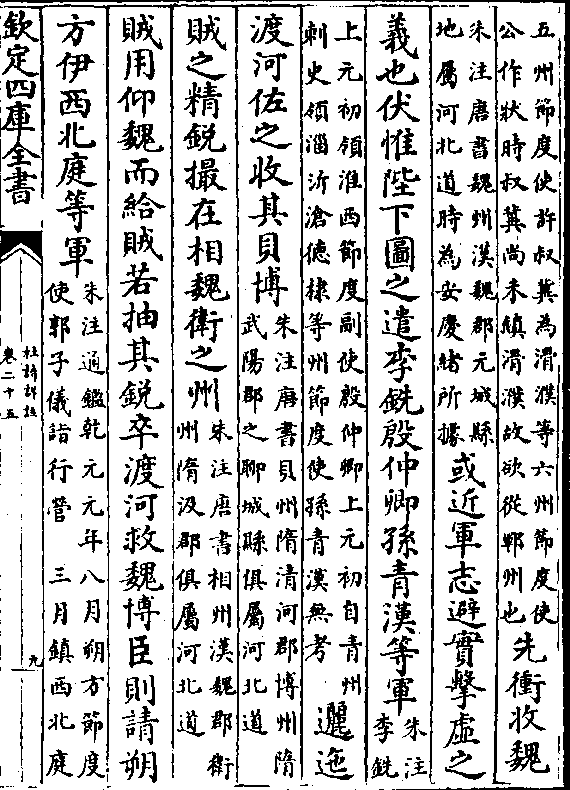 五州節度使許叔冀為滑濮等六州節度使
公作狀時叔冀尚未鎮滑濮故欲從鄆州也
先衝收魏
朱注唐書魏州漢魏郡元城縣
地屬河北道時為安慶緒所據
或近軍志避實擊虛之
義也伏惟陛下圖之遣李銑殷仲卿孫青漢等軍
朱注
李銑
上元初領淮西節度副使殷仲卿上元初自青州
刺史領淄沂滄德棣等州節度使孫青漢無考
邐迤
渡河佐之收其貝博
朱注唐書貝州隋清河郡博州隋
武陽郡之聊城縣俱屬河北道
賊之精銳撮在相魏衛之州
朱注唐書相州漢魏郡衛
州隋汲郡俱屬河北道
賊用仰魏而給賊若抽其銳卒渡河救魏博臣則請朔
方伊西北庭等軍
朱注通鑑乾元元年八月朔方節度
使郭子儀詣行營 三月鎮西北庭
欽定四庫全書
杜詩詳註
卷二十五
九